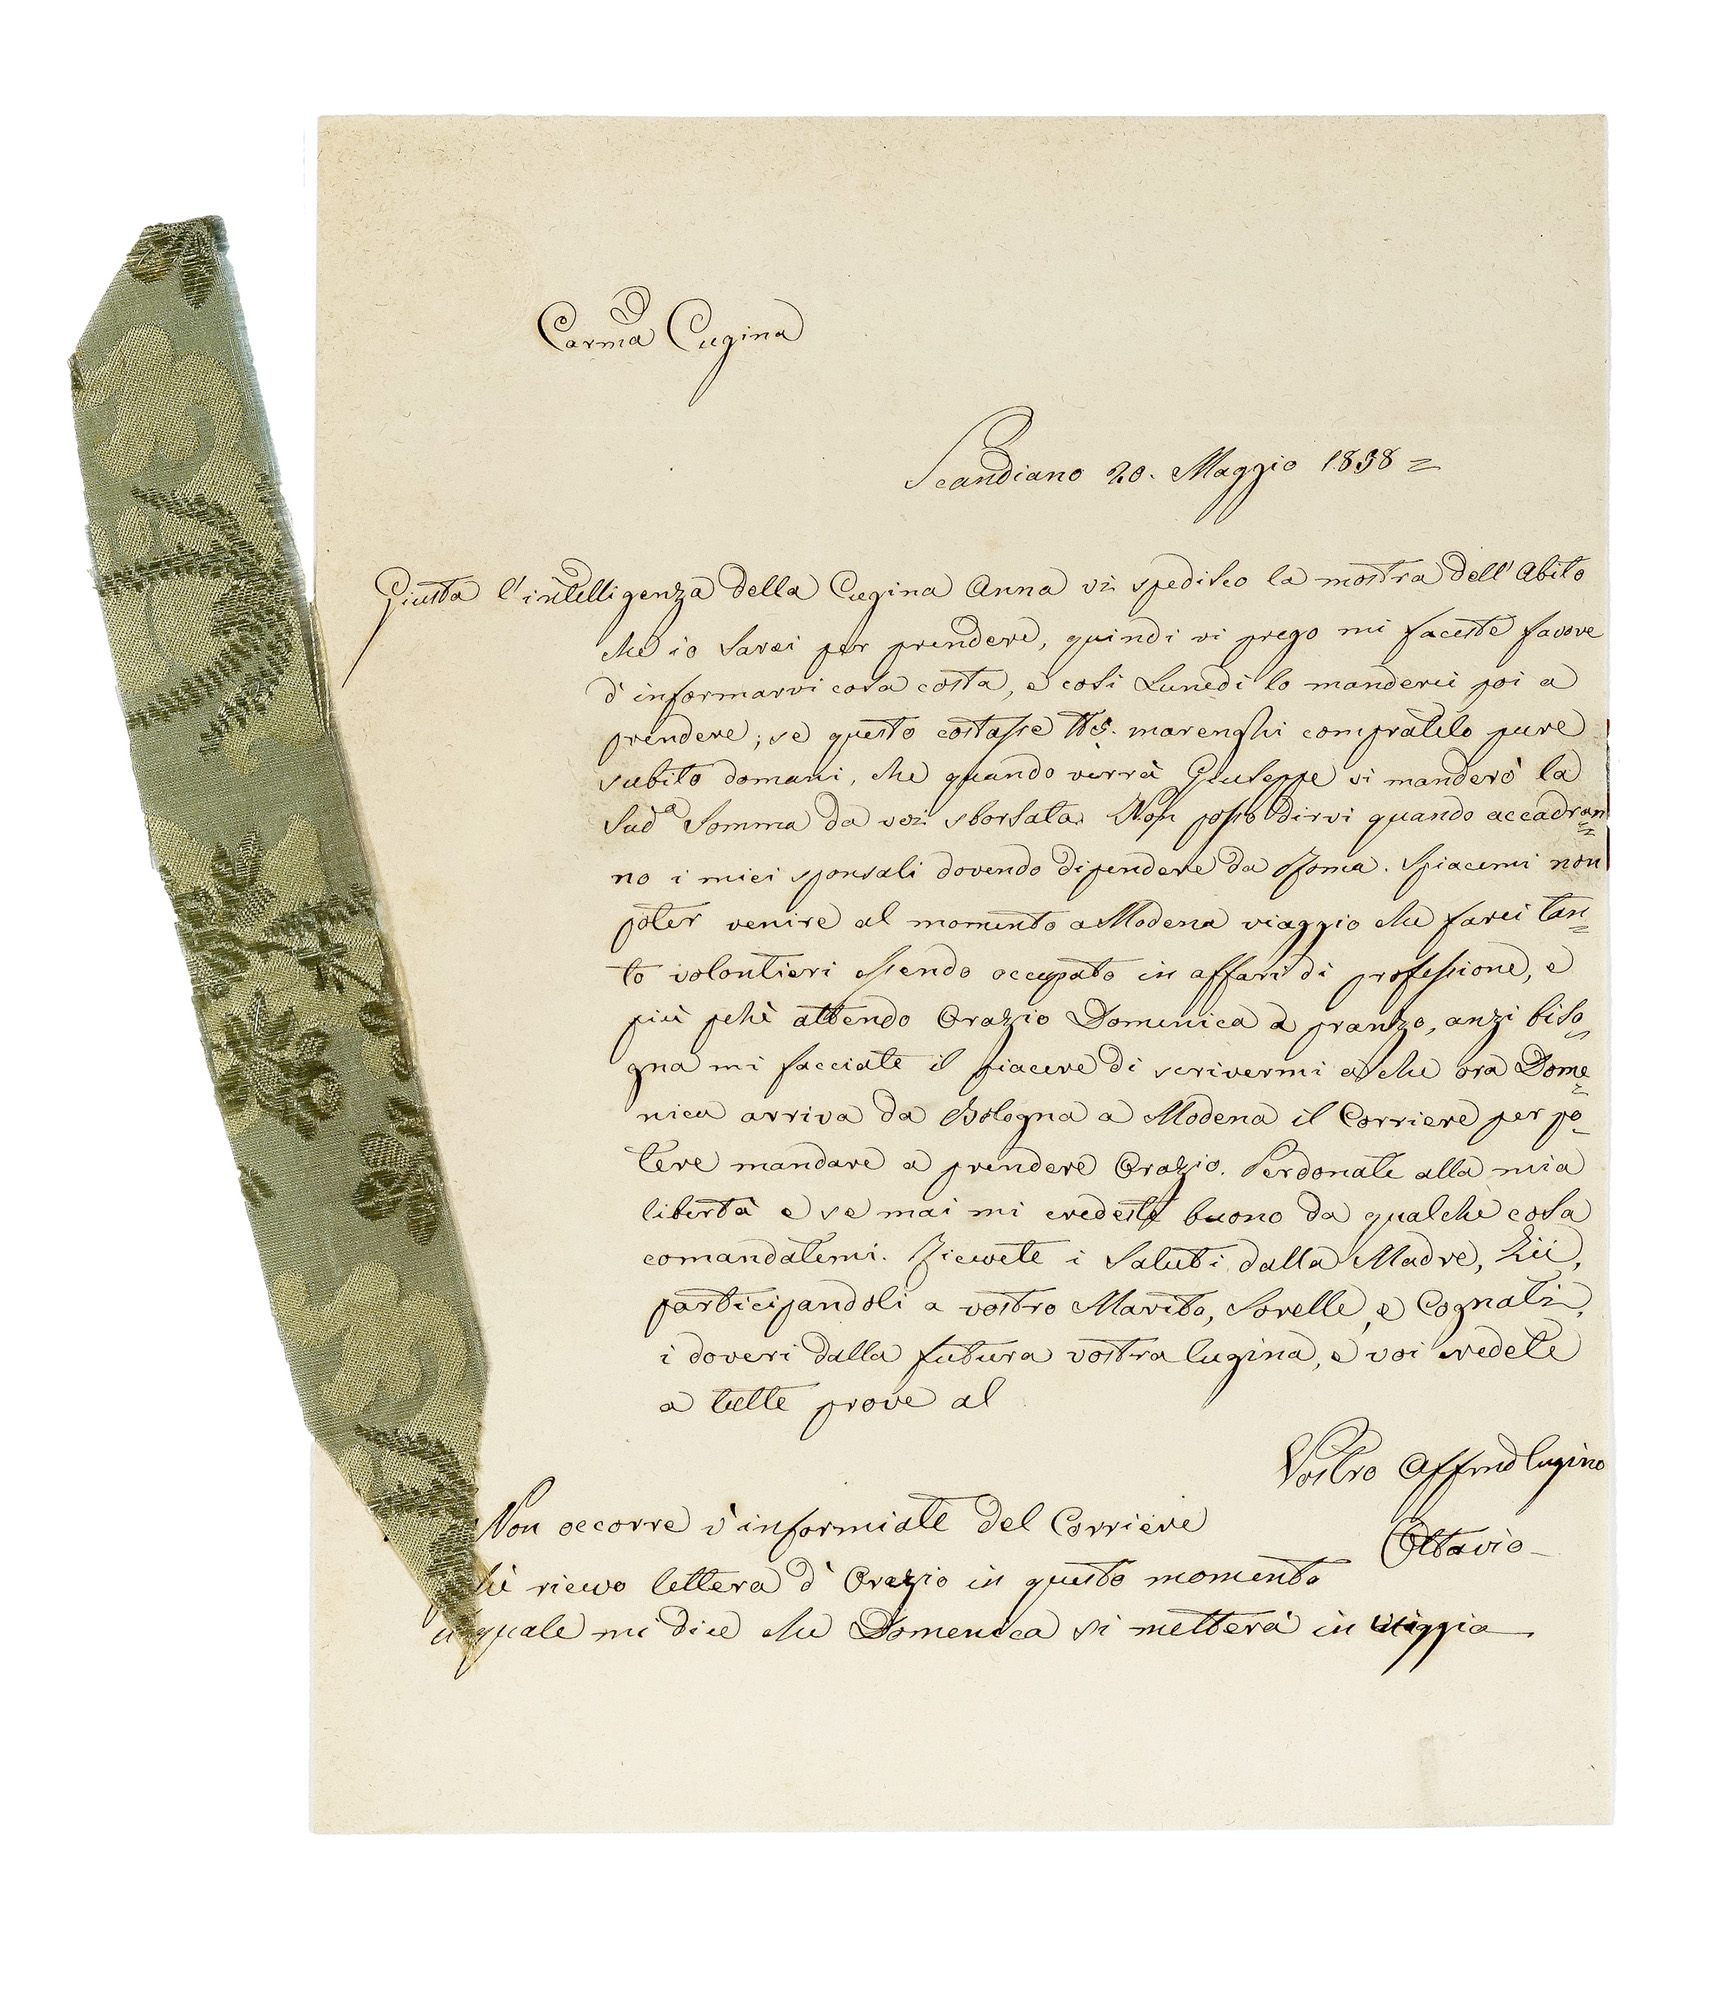 Carma Cugina
Scandiano 20. Maggio 1838=
Giusta l'intelligenza della Cugina Anna vi spedisco la mostra dell'Abito
che io sarei per prendere, quindi vi prego mi faceste favore
d'informarvi cosa costa, e così Lunedì lo manderei poi a
prendere; se questo costasse marenghi compratelo pure
subito domani, che quando verrà Giuseppe vi manderò la
Sudª Somma da voi sborsata. Non posso dirvi quando accadran=
no i miei sponsali dovendo dipendere da Roma. Spiacemi non
poter venire al momento a Modena viaggio che farei tan=
to volontieri essendo occupato in affari di professione, e
più pchè attendo Orazio Domenica a pranzo, anzi biso=
gna mi facciate il piacere di scrivermi a che ora Dome=
nica arriva da Bologna a Modena il Corriere per po=
tere mandare a prendere Orazio. Perdonate alla mia
libertà e se mai mi credeste buono da qualche cosa
comandatemi. Ricevete i Saluti dalla Madre, Zii,
participandoli a vostro Marito, Sorelle, e Cognati,
i doveri dalla futura vostra Cugina, e voi credete
a tutte prove al
Vostro Affmo Cugino
Ottavio
Non occorre v'informiate del Corriere
chè ricevo lettera d'Orazio in questo momento
il quale mi dice che Domenica si metterà in viaggio